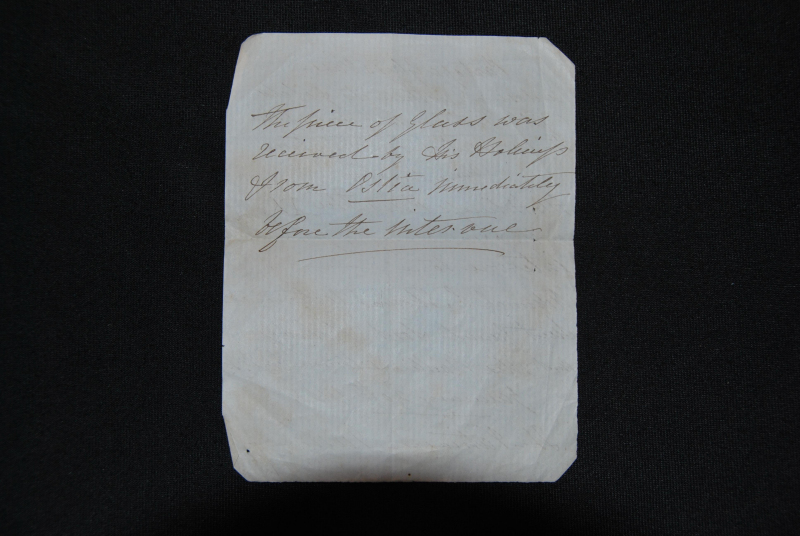 The piece of Glass was
received by His Holiness
from Ostia immediately
before the interview.